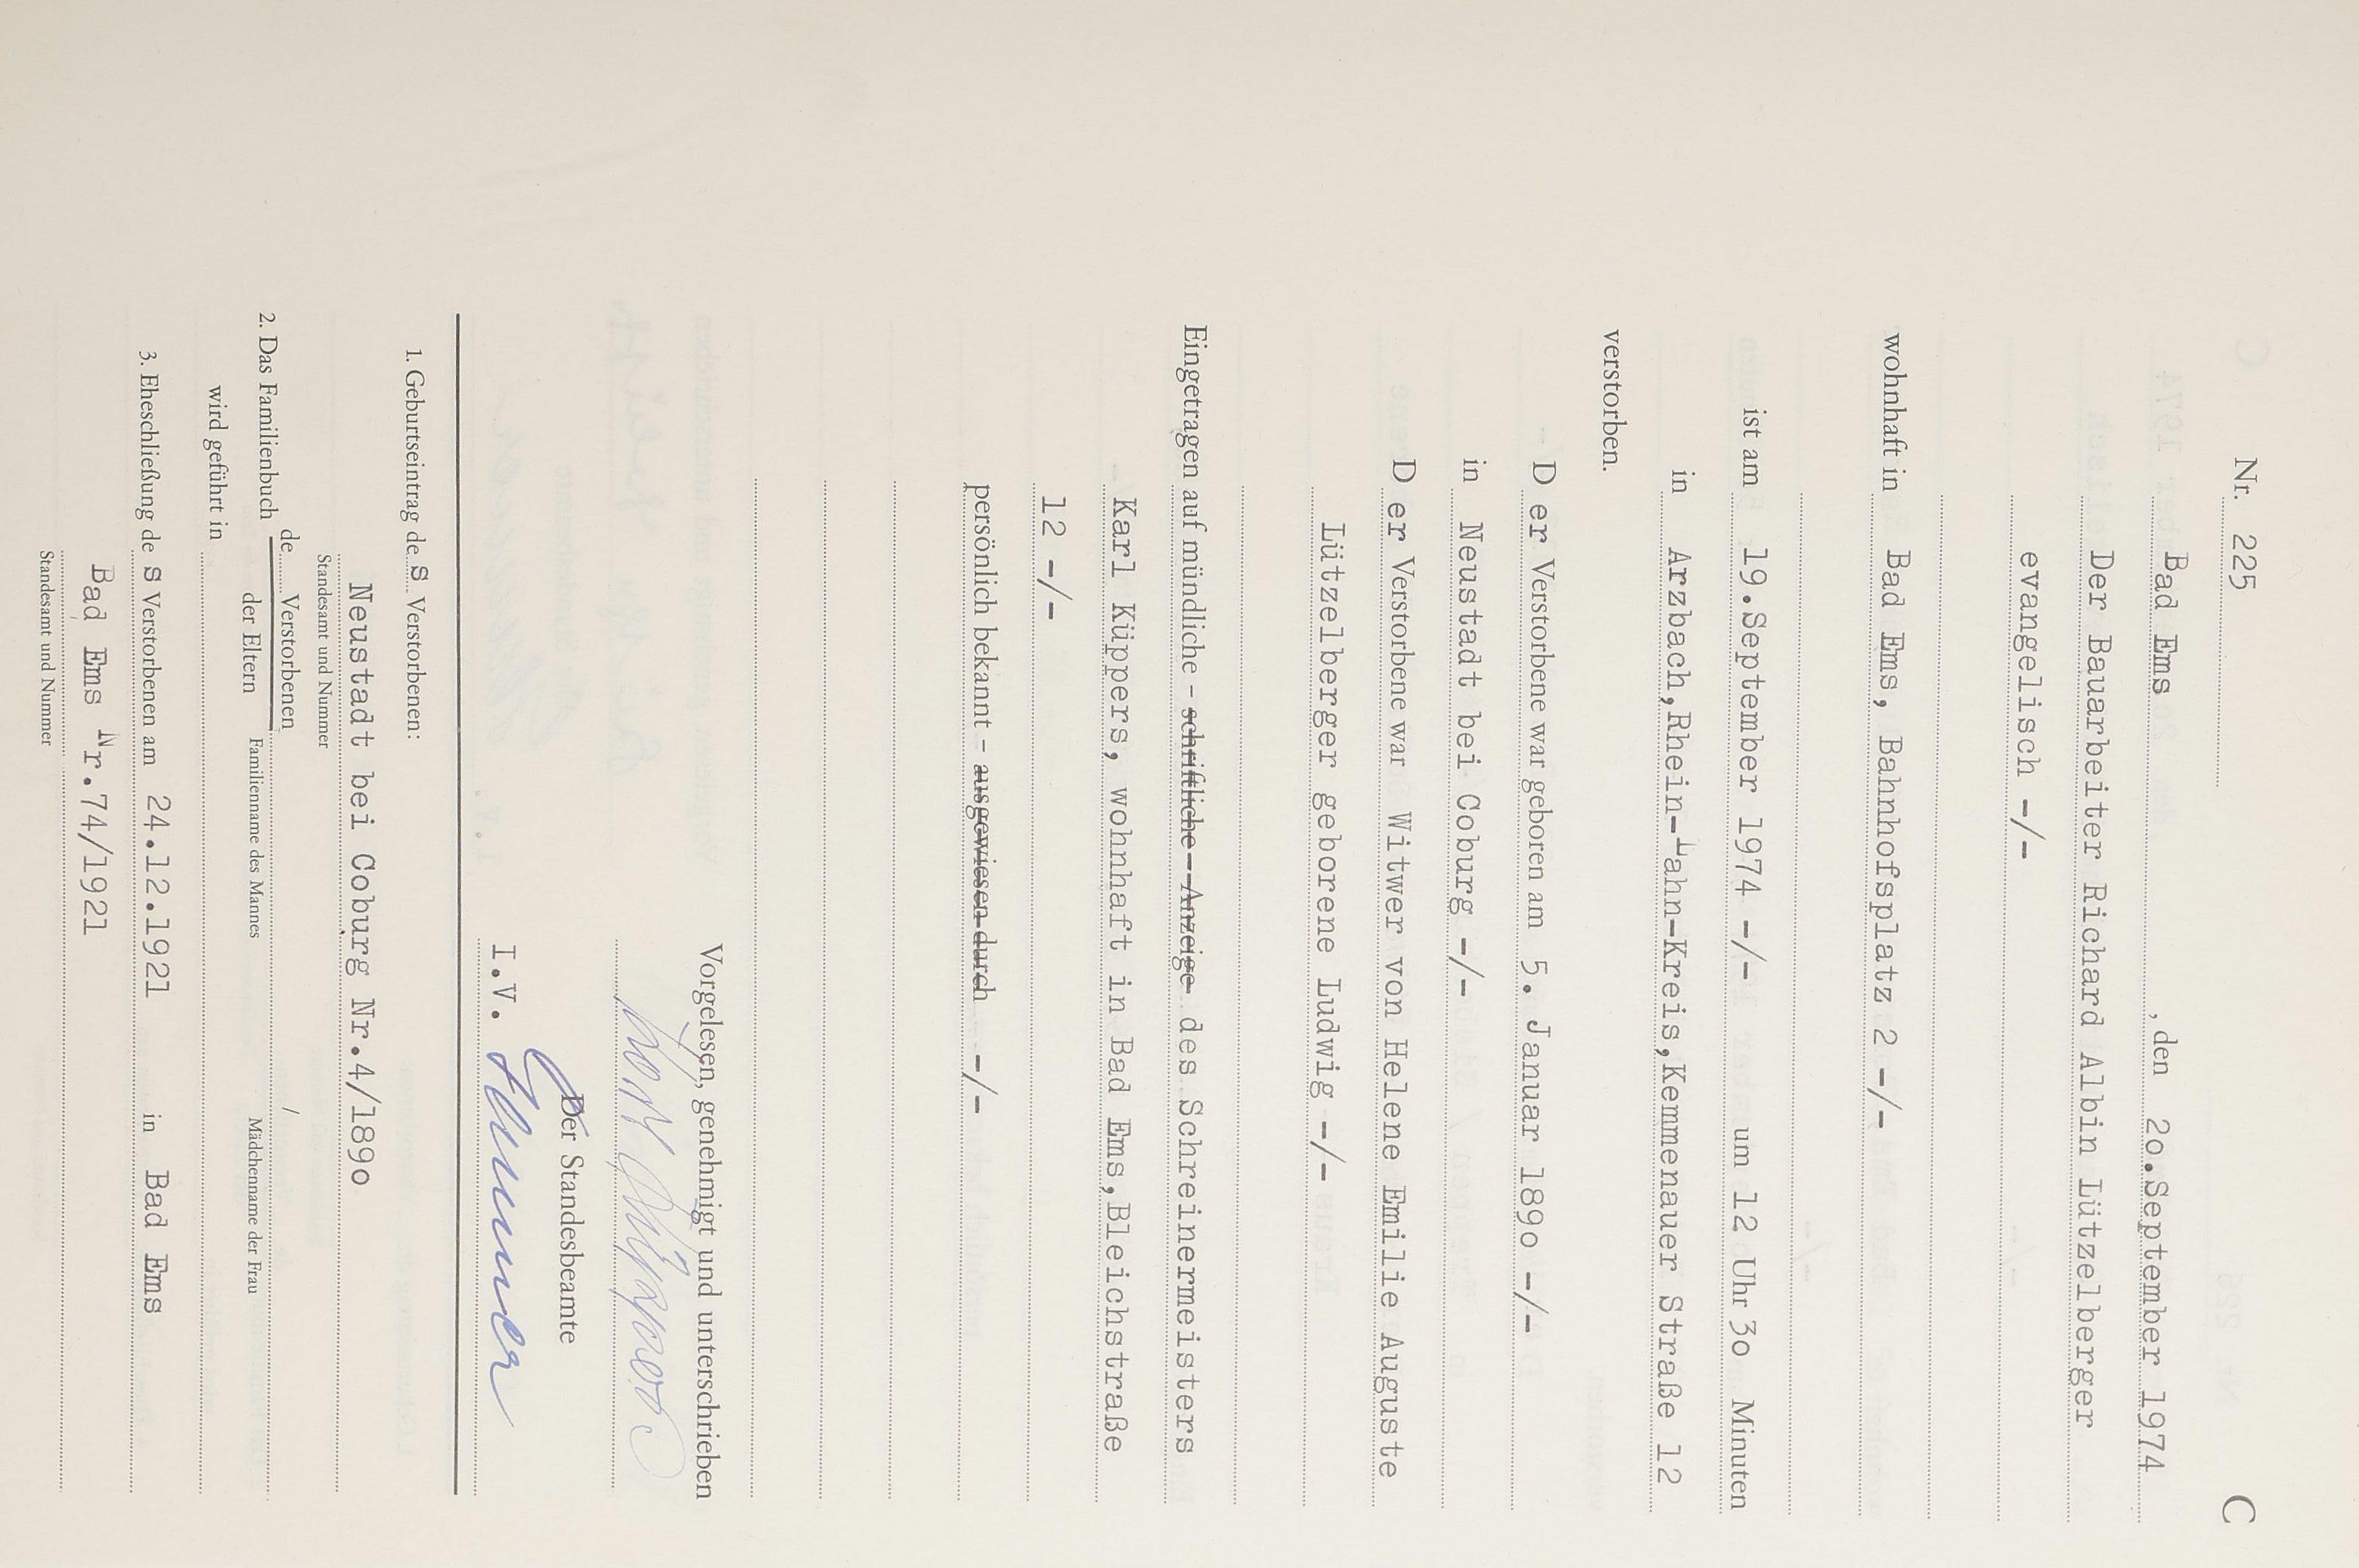 Nr. 225 C
Bad Ems , den 2o.September 1974
Der Bauarbeiter Richard Albin Lützelberger
evangelisch -/-
wohnhaft in Bad Ems, Bahnhofsplatz 2 -/-
ist am 19.September 1974 -/- um 12 Uhr 3o Minuten
in Arzbach,Rhein-Lahn-Kreis,Kemmenauer Straße 12
verstorben.
D er Verstorbene war geboren am 5. Januar 189o -/-
in Neustadt bei Coburg -/-
D er Verstorbene war Witwer von Helene Emilie Auguste
Lützelberger geborene Ludwig -/-
Eingetragen auf mündliche - schriftliche - Anzeige des Schreinermeisters
Karl Küppers, wohnhaft in Bad Ems,Bleichstraße
12 -/-
persönlich bekannt - ausgewiesen durch -/-
Vorgelesen, genehmigt und unterschrieben
Karl Küppers
Der Standesbeamte
I.V.
1. Geburtseintrag de S Verstorbenen:
Neustadt bei Coburg Nr.4/189o
Standesamt und Nummer
2. Das Familienbuch de Verstorbenen /
der Eltern Familienname des Mannes Mädchenname der Frau
wird geführt in
3. Eheschließung de S Verstorbenen am 24.12.1921 in Bad Ems
Bad Ems Nr.74/1921
Standesamt und Nummer